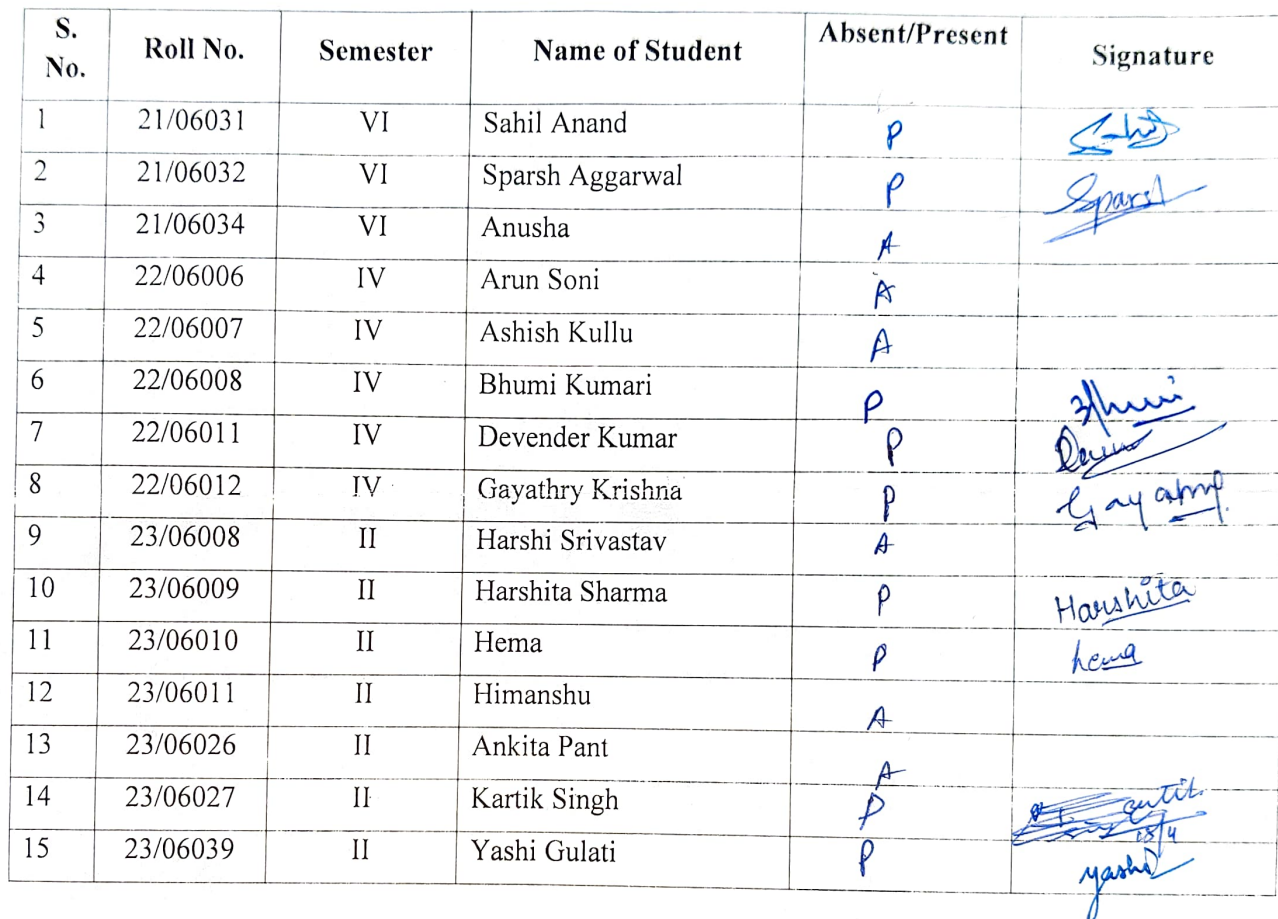 S. No. Roll No. Semester Name of Student Absent/Present Signature
1 21/06031 VI Sahil Anand P Sahil
2 21/06032 VI Sparsh Aggarwal P Sparsh
3 21/06034 VI Anusha A
4 22/06006 IV Arun Soni A
5 22/06007 IV Ashish Kullu A
6 22/06008 IV Bhumi Kumari P Bhumi
7 22/06011 IV Devender Kumar P
8 22/06012 IV Gayathry Krishna P Gayathry
9 23/06008 II Harshi Srivastav A
10 23/06009 II Harshita Sharma P Harshita
11 23/06010 II Hema P hema
12 23/06011 II Himanshu A
13 23/06026 II Ankita Pant A
14 23/06027 II Kartik Singh P
15 23/06039 II Yashi Gulati P yashi